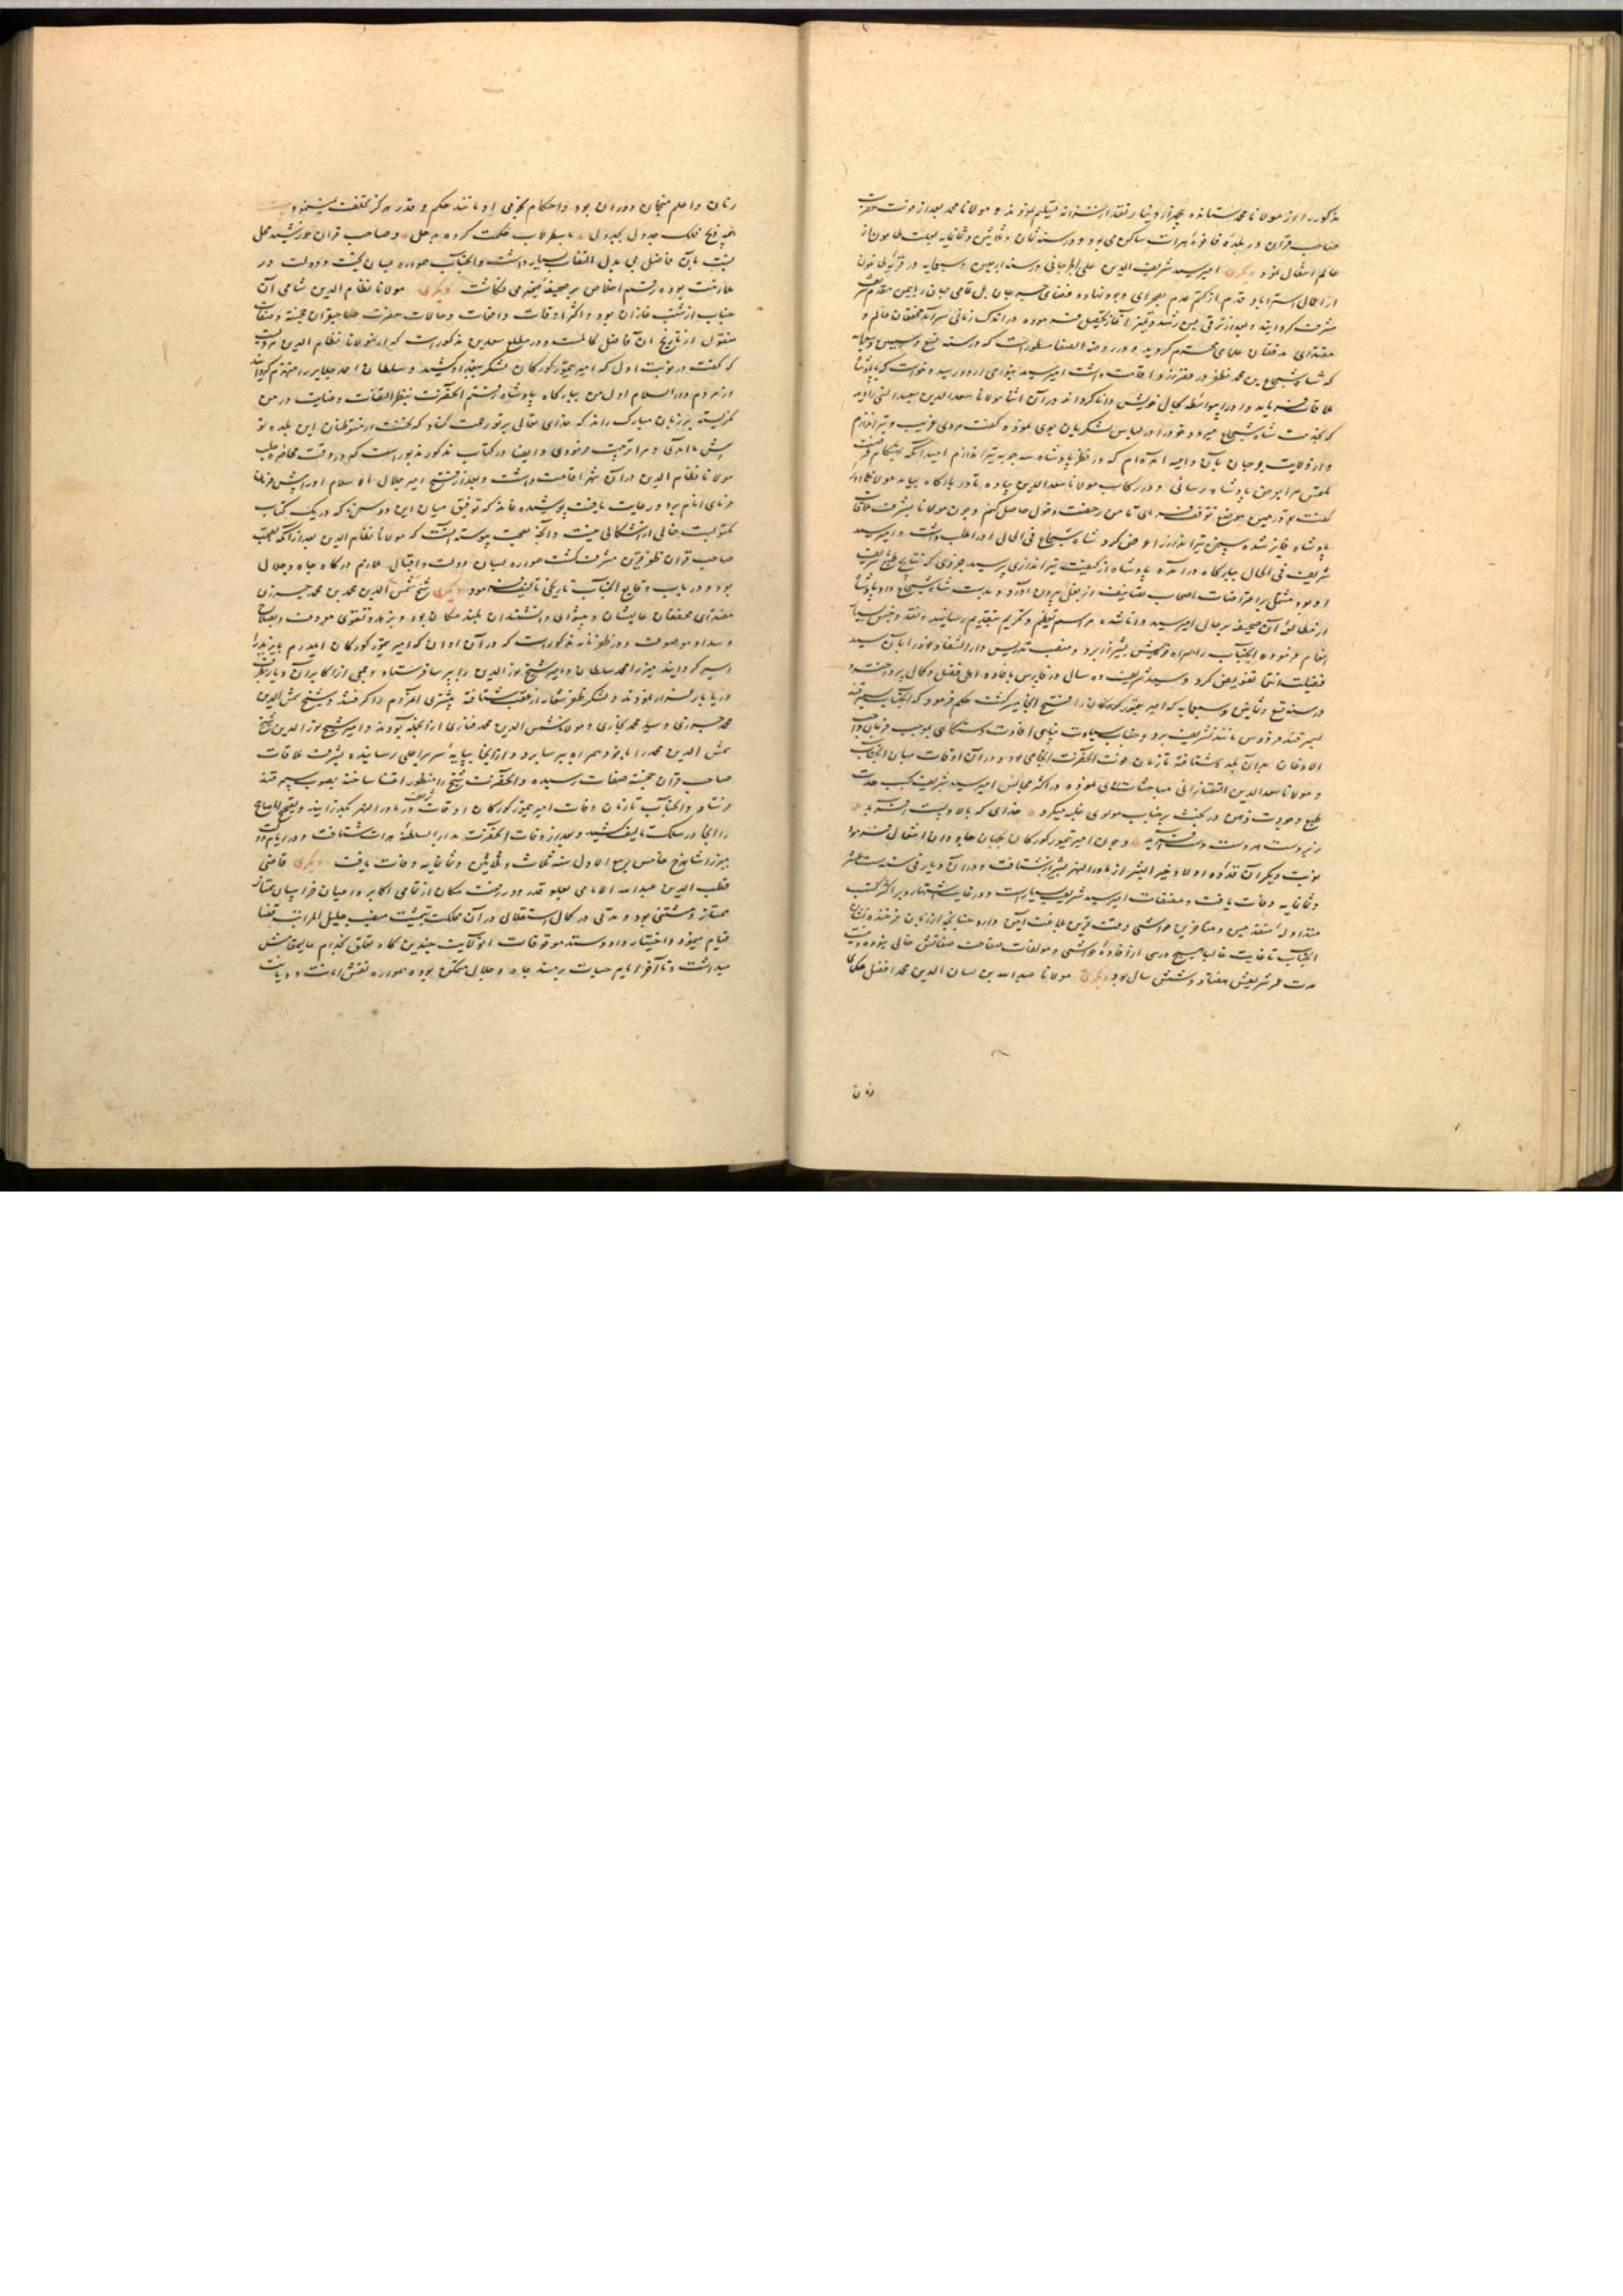 مذکور را از مولانا محمد ستانده چهار هزار دینار نقد از خزانه تسلیم نمودند و مولانا محمد بعد از فوت حضرت
صاحب قران در بلده فاخره هرات ساکن می بود و در سنه ثمان و ثلاثین و ثمانمایه بعلت طاعون از
عالم انتقال نمود دیگری امیر سید شریف الدین علی الجرجانی در سنه اربعین و سبعمایه در قریه طاغون
از اعمال استراباد قدم از کتم عدم بصحرای وجود نهاده فضای جرجان بل تمامی جهان را بیمن مقدم شریف
مشرف گردانید و بعد از ترقی بسن رشد و تمیز آغاز تحصیل فرموده در اندک زمانی سرآمد محققان عالم و
مقتدای مدققان علمای محترم گردید و در روضه الصفا مسطور است که در سنه تسع و سبعین و سبعمایه
که شاه شجاع بن محمد مظفر در قصر زرد اقامت داشت امیر سید بنواحی اردو رسیده خواست که با پادشاه
ملاقات فرماید و او را بواسطه کمال خویش دانا گرداند در آن اثنا مولانا سعد الدین سعید انسی را دید
که بخدمت شاه شجاع میرود خود را در لباس لشکریان بوی نموده گفت مردی غریب و تیراندازم
و از ولایت جرجان بآن داعیه آمده ام که در نظر پادشاه سه چوبه تیر اندازم امید آنکه بهنگام فرصت
ملتمس مرا بعرض پادشاه رسانی و در رکاب مولانا سعد الدین پیاده تا در بارگاه بیامد مولانا او را
گفت تو در همین موضع توقف فرمای تا من رخصت دخول حاصل کنم و چون مولانا بشرف ملاقات
پادشاه فایز شده سخن تیرانداز را عرض کرد شاه شجاع فی الحال او را طلب داشت و امیر سید
شریف فی الحال ببارگاه درآمده پادشاه از کیفیت تیراندازی پرسید جزوی که نتایج طبع شریف
او بود مشتمل بر اعتراضات اصحاب تصانیف از بغل بیرون آورد و بدست شاه شجاع داد پادشاه
از مطالعه آن صحیفه بر حال امیر سید دانا شده مراسم تعظیم و تکریم بتقدیم رسانید و نقد و جنس بسیار
انعام فرموده آنجناب را همراه خویش بشیراز برد و منصب تدریس دار الشفاء خود را بآن سید
فضیلت انتما تفویض کرد و سید شریف ده سال در فارس بافاده اهل فضل و کمال پرداخت و
در سنه تسع و ثمانین و سبعمایه که امیر تیمور گورکان را فتح آنجا میسر گشت حکم فرمود که آنجناب بسمرقند
سمرقند فردوس مانند تشریف برد و جناب سیادت پناهی افادت دستگاهی بموجب فرمان واجب
الاذعان بدان بلده شتافته تا زمان فوت آنحضرت آنجا می بود و در آن اوقات میان آنجناب
و مولانا سعد الدین التفتازانی مباحثات روی نموده در اکثر مجالس امیر سید شریف بحسب حدت
طبع و جودت ذهن در بحث بر جناب مولوی غلبه میکرد خدای که بالا و پست آفرید
زبردست هر دست دست آفرید و چون امیر تیمور گورکان بجهان جاودان انتقال فرمود
نوبت دیگر آن قدوه اولاد خیر البشر از ماوراء النهر بشیراز شتافت و در آن دیار فی سنه ست عشر
و ثمانمایه وفات یافت و مصنفات امیر سید شریف بسیار است و در غایت اشتهار و بر اکثر کتب
متداوله متقدمین و متأخرین حواشی دقت قرین بلاغت آیین دارد چنانچه از زمان فرخنده نشان
آنجناب تا غایت غالبا هیچ درسی از افاده حواشی و مولفات صفاحت صفاتش خالی نبوده
مدت عمر شریفش هفتاد و شش سال بود دیگری مولانا عبد الله بن لسان الدین محمد افضل حکمای
زمان
زمان و اعلم منجمان دوران بود و احکام نجومی او مانند حکم و قدر هرگز تخلف نمی نمود بیت
بتقویم فلک جدول بجدول باسطرلاب حکمت کرده به حل و صاحب قران خورشید محل
نسبت بآن فاضل بی بدل التفات بسیار داشت و آنجناب همواره میان بخت و دولت در
ملازمت بوده رقم اخلاص بر صحیفه ضمیر می نگاشت دیگری مولانا نظام الدین شامی آن
جناب از شنب غازان بود و اکثر اوقات واقعات و حالات حضرت صاحبقران خجسته صفات
منقول از تاریخ آن فاضل کاملست و در مطلع سعدین مذکور است که از مولانا نظام الدین مرویست
که گفت در نوبت اول که امیر تیمور گورکان لشکر ببغداد کشید و سلطان احمد جلایر را منهزم گردانید
از مردم دار السلام اول من ببارگاه پادشاه رفتم آنحضرت بنظر التفات و عنایت در من
نگریسته بر زبان مبارک راند که خدای تعالی بر تو رحمت کناد که نخست از متوطنان این بلده تو
پیش ما آمدی و مرا تربیت فرمودی و ایضا در کتاب مذکور مذبور است که در وقت محاصره حلب
مولانا نظام الدین در آن شهر اقامت داشت و بعد از فتح امیر جلال اسلام او را پیش فرمان
فرمای انام برد و رعایت یافت پوشیده نماند که توفیق میان این دو سخن که در یک کتاب
مکتوبست خالی از اشکالی نیست و آنچه بصحت پیوسته آنست که مولانا نظام الدین بعد از آنکه بصحبت
صاحب قران ظفر قرین مشرف گشت همواره بسان دولت و اقبال ملازم درگاه جاه و جلال
بود و در باب وقایع آنجناب تاریخی تالیف فرمود دیگری شیخ شمس الدین محمد بن محمد جزری
مقتدای محققان عالیشان و پیشوای دانشمندان بلند مکان بود و بزهد و تقوی معروف و بصلاح
و سداد موصوف و در ظفرنامه مذکور است که در آن اوان که امیر تیمور گورکان ایلدرم بایزید را
اسیر گردانید میرزا محمد سلطان و امیر شیخ نور الدین را ببرسا فرستاد و جمعی از اکابر آن دیار بطرف
دریا بار فرار نمودند و لشکر ظفر شعار از عقب شتافته بیشتری از مردم را گرفتند و شیخ شمس الدین
محمد جزری و سید محمد بخاری و مولانا شمس الدین محمد فناری از آنجمله بودند و امیر شیخ نور الدین شیخ
شمس الدین محمد را با خود همراه ببرسا برد و از آنجا بپایه سریر اعلی رسانیده بشرف ملاقات
صاحب قران خجسته صفات رسیده و آنحضرت شیخ را منظور اعتنا ساخته بصوب سمرقند
فرستاد و آنجناب تا زمان وفات امیر تیمور گورکان اوقات شریف در ماوراء النهر گذرانید و تصحیح المصابیح
را آنجا در سلک تالیف کشید و بعد از وفات آنحضرت بدار السلطنه هرات شتافت و در ایام دولت
میرزا شاهرخ خامس ربیع الاول سنه ثلاث و ثلثین و ثمانمایه وفات یافت دیگری قاضی
قطب الدین عبد الله الامامی بعلو قدر و رفعت مکان از تمامی اکابر و اعیان خراسان ممتاز
ممتاز و مستثنی بود و مدتی در کمال استقلال در آن مملکت بتمشیت منصب جلیل المراتب قضا
قیام مینمود و اختیار داد و ستد موقوفات آنولایت چندین گاه تعلق بخدام عالیمقامش
میداشت و تا آخر ایام حیات بر مسند جاه و جلال متمکن بوده همواره نقش امانت و دیانت